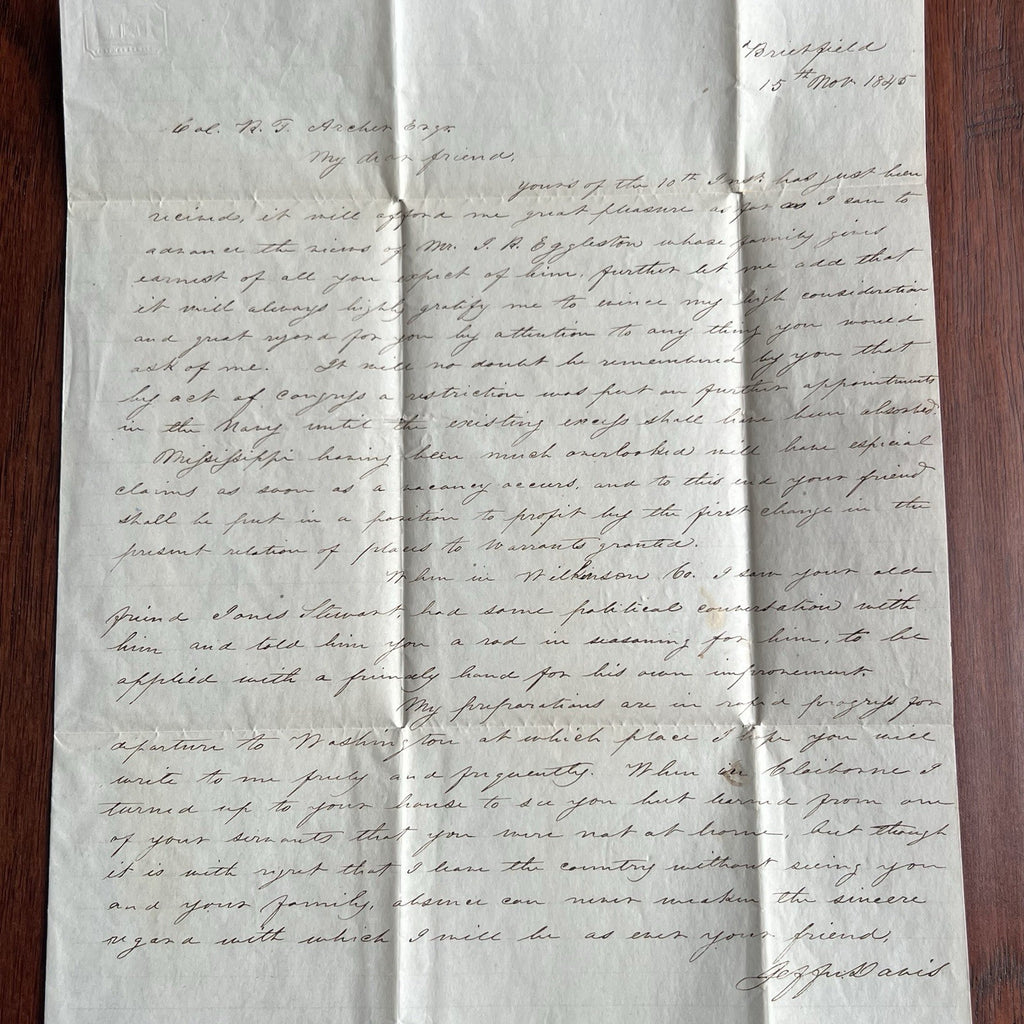 Brierfield
15th Nov 1845
Col. R. T. Archer Esqr.
My dear friend,
yours of the 10th Inst. has just been
recieved, it will afford me great pleasure as far as I can to
advance the views of Mr. J. R. Eggleston whose family gives
earnest of all you expect of him, further let me add that
it will always highly gratify me to evince my high consideration
and great regard for you by attention to any thing you would
ask of me. It will no doubt be remembered by you that
by act of congress a restriction was put on further appointments
in the Navy until the existing excess shall have been absorbed.
Mississippi having been much overlooked will have especial
claims as soon as a vacancy occurs, and to this end your friend
shall be put in a position to profit by the first change in the
present relation of places to warrants granted.
When in Wilkinson Co. I saw your old
friend Jones Stewart, had some political conversation with
him and told him you a rod in seasoning for him, to be
applied with a friendly hand for his own improvement.
My preparations are in rapid progress for
departure to Washington at which place I hope you will
write to me freely and frequently. When in Claiborne I
turned up to your house to see you but learned from one
of your servants that you were not at home, but though
it is with regret that I leave the country without seeing you
and your family, absence can never weaken the sincere
regard with which I will be as ever your friend,
Jeffn. Davis